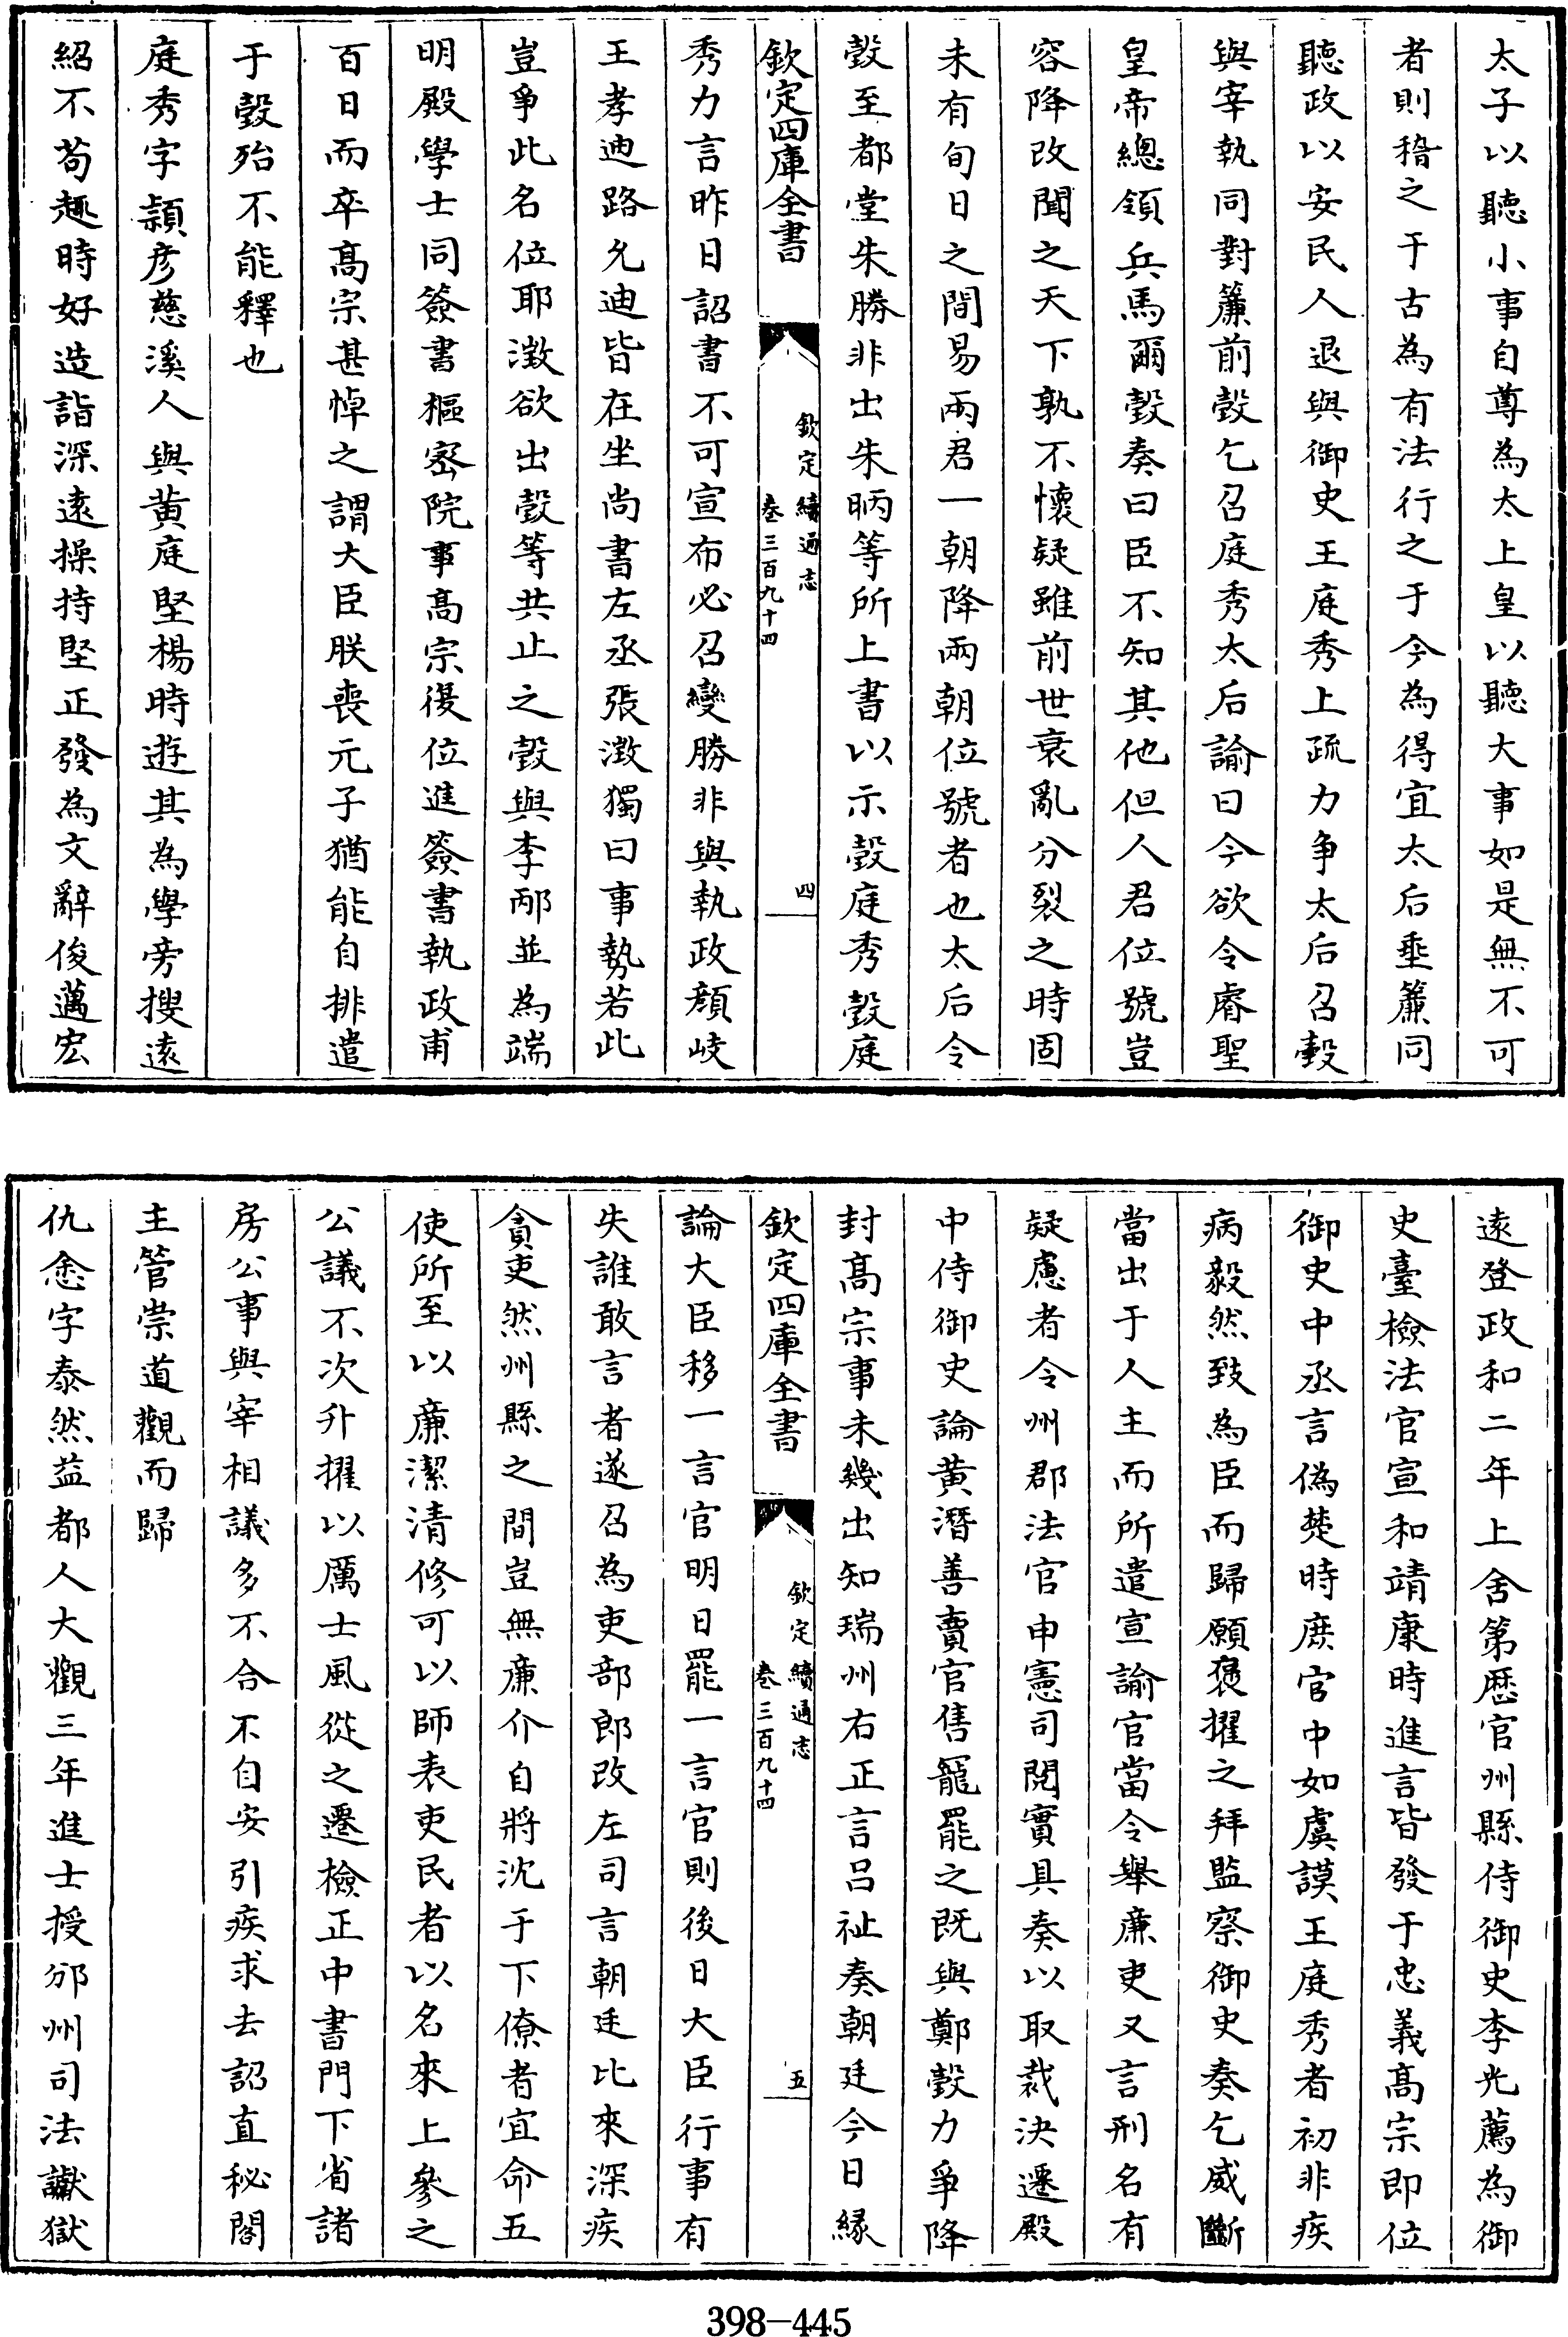 太子以聽小事自尊為太上皇以聽大事如是無不可
者則稽之于古為有法行之于今為得宜太后垂簾同
聽政以安民人退與御史王庭秀上疏力争太后召㲄
與宰執同對簾前㲄乞召庭秀太后諭曰今欲令睿聖
皇帝總領兵馬爾㲄奏曰臣不知其他但人君位號豈
容降改聞之天下孰不懷疑雖前世衰亂分裂之時固
未有旬日之間易兩君一朝降兩朝位號者也太后令
㲄至都堂朱勝非出朱昞等所上書以示㲄庭秀㲄庭
欽定四庫全書
欽定續通志
卷三百九十四
四
秀力言昨日詔書不可宣布必召變勝非與執政顏岐
王孝迪路允迪皆在坐尚書左丞張澂獨曰事勢若此
豈爭此名位耶澂欲出㲄等共止之㲄與李邴並為端
明殿學士同簽書樞密院事髙宗復位進簽書執政甫
百日而卒髙宗甚悼之謂大臣朕喪元子猶能自排遣
于㲄殆不能釋也
庭秀字頴彦慈溪人與黄庭堅楊時遊其為學旁搜逺
紹不茍趣時好造詣深逺操持堅正發為文辭俊邁宏
逺登政和二年上舍第歴官州縣侍御史李光薦為御
史臺檢法官宣和靖康時進言皆發于忠義髙宗即位
御史中丞言偽楚時庶官中如虞謨王庭秀者初非疾
病毅然致為臣而歸願褒擢之拜監察御史奏乞威斷
當出于人主而所遣宣諭官當令舉亷吏又言刑名有
疑慮者令州郡法官申憲司閱實具奏以取裁決遷殿
中侍御史論黄潛善賣官售寵罷之既與鄭㲄力爭降
封髙宗事未幾出知瑞州右正言吕祉奏朝廷今日縁
欽定四庫全書
欽定續通志
卷三百九十四
五
論大臣移一言官明日罷一言官則後日大臣行事有
失誰敢言者遂召為吏部郎改左司言朝廷比來深疾
貪吏然州縣之間豈無亷介自將沈于下僚者宜命五
使所至以亷潔清修可以師表吏民者以名來上參之
公議不次升擢以厲士風從之遷檢正中書門下省諸
房公事與宰相議多不合不自安引疾求去詔直秘閣
主管崇道觀而歸
仇悆字泰然益都人大觀三年進士授邠州司法讞獄
398-445